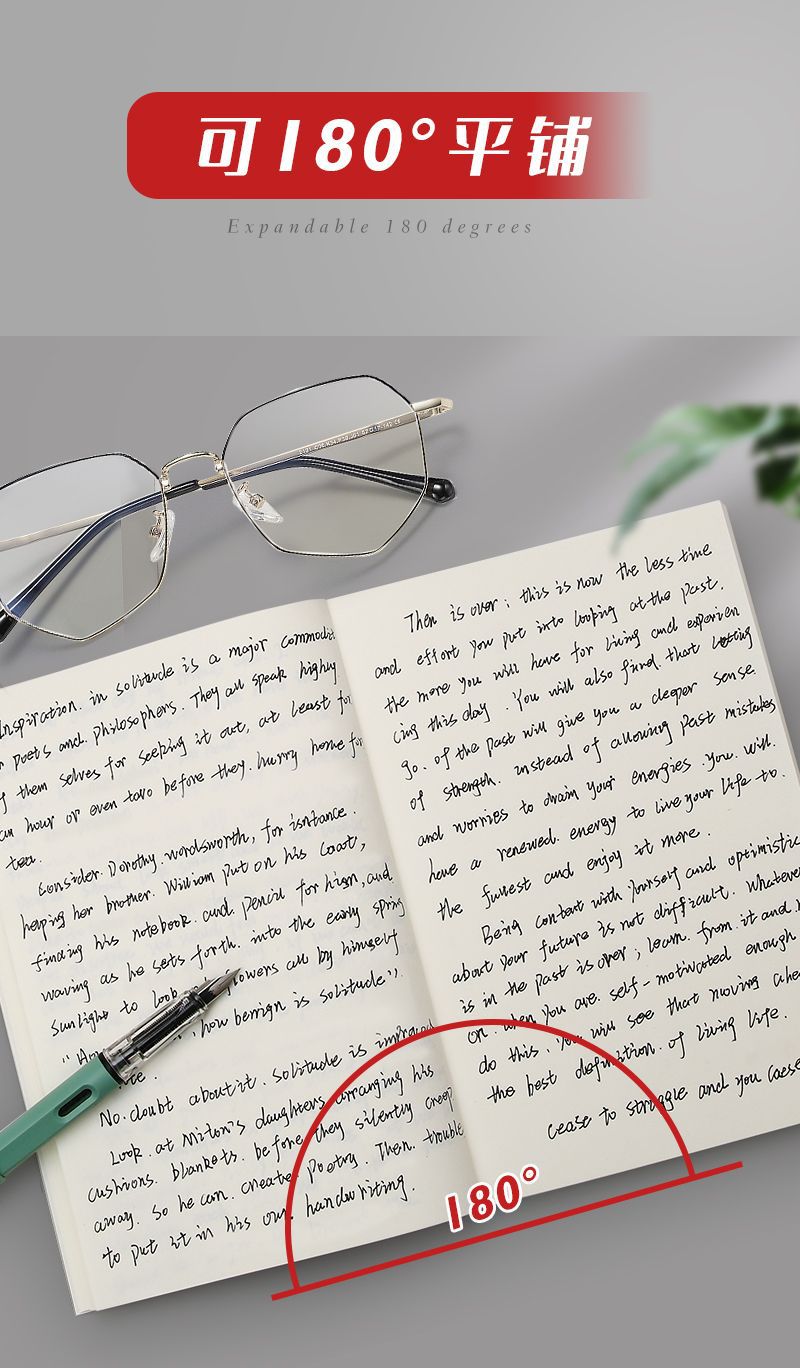 可180°平铺
Expandable 180 degrees
Inspiration. in solitude is a major commodit
poets and. philosophers. They all speak highly
them selves for seeking it out, at least for
hour or even tavo before they. hurry home for
tea.
Consider. Dorothy. wordsworth, for isntance.
heping her brother. William put on his coat,
finding his notebook. and. pencil for him, and
waving as he sets forth. into the early spring
sunlight to look owers all by himself
how benign is solitude").
No. doubt about it. solitude is improved
Look. at Milton's daughters arranging his
cushions. blankets. before they silently creep
away. So he can. create poetry. Then. trouble
to put it in his own handwriting.
Then is over; this is now the less time
and effort you put into looping at the past,
the more you will have for living and experien
cing this day. You will also find. that
go. of the past will give you a deeper sense
of strength. instead of allowing past mistakes
and worries to drain your energies. you. will.
have a renewed. energy to live your life to.
the fullest and enjoy it more.
Being content with yourself and optimistic
about your future is not difficult. Whatever
is in the past is over; learn. from. it and.
on. when you are. self-motivated enough
do this. You will see that moving ahe
the best definition. of living life.
cease to struggle and you
180°